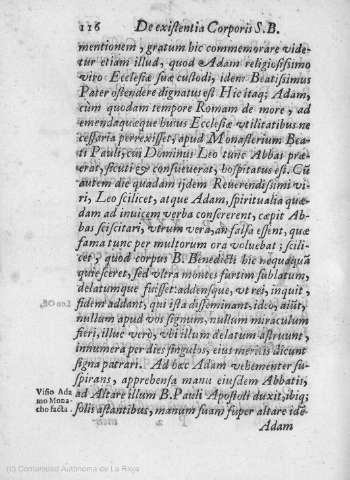 116 De existentia Corporis S.B.
mentionem, gratum hic commemorare vide-
tur etiam illud, quod Adam religiosissimo
viro Ecclesiæ suæ custodi, idem Beatissimus
Pater ostendere dignatus est Hic itaq; Adam,
cùm quodam tempore Romam de more, ad
emendaquæque huius Ecclesiæ vtilitatibus ne
cessaria perrexisset; apud Monasterium Bea-
ti Pauli, cui Dominus Leo tunc Abbas præ-
erat, sicuti & consueuerat, hospitatus est. Cū
autem die quadam ijdem Reuerendissimi vi-
ri, Leo scilicet, atque Adam, spiritualia quæ-
dam ad inuicem verba consererent, cæpit Ab-
bas sciscitari, vtrum vera, an falsa essent, quæ
fama tunc per multorum ora voluebat; scili-
cet, quod corpus B. Benedicti hic nequaquā
quiesceret, sed vltra montes furtim sublatum,
delatumque fuisset: addensque, vt rei, inquit,
fidem addant, qui ista disseminant, ideo, aiūt,
nullum apud vos signum, nullum miraculum
fieri, illuc verò, vbi illum delatum astruunt,
innumera per dies singulos, eius meritis dicunt
signa patrari. Ad hæc Adam vehementer su-
spirans, apprehensa manu eiusdem Abbatis,
Visio Ada
mo Mona-
cho facta.
ad Altare illum B. Pauli Apostoli duxit, ibiq;
solis astantibus, manum suam super altare idē
Adam
(c) Comunidad Autónoma de La Rioja